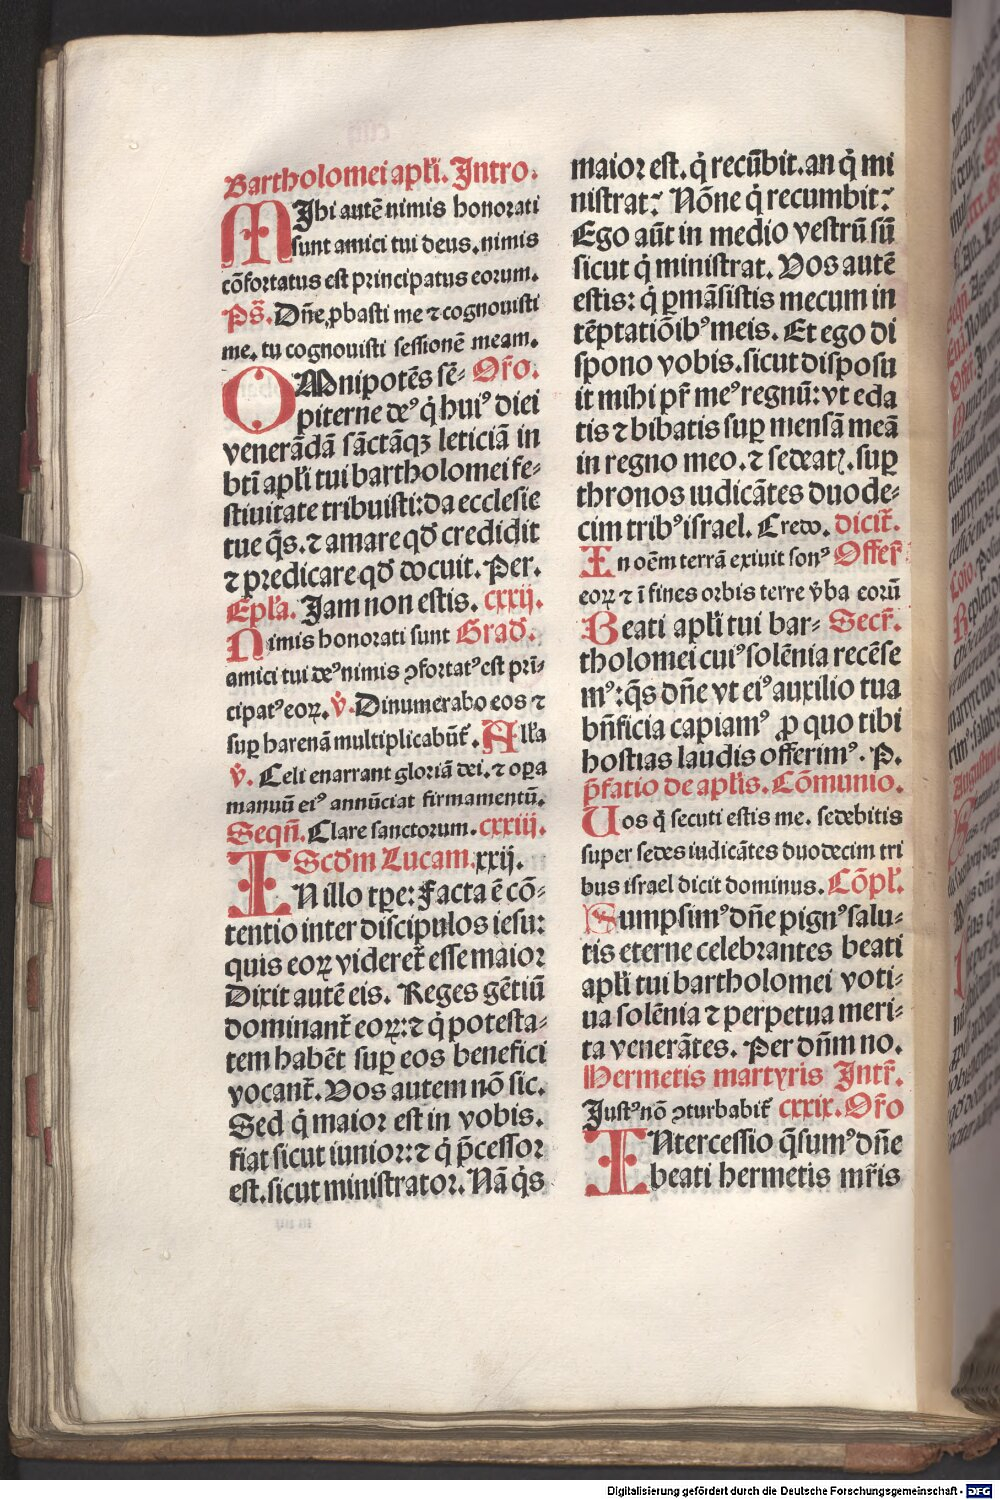 Bartholomei apl'i. Intro.
MIhi autē nimis honorati
sunt amici tui deus. nimis
cōfortatus est principatus eorum.
Ps̄. Dn̄e ꝓbasti me ⁊ cognouisti
me. tu cognouisti sessionē meam.
OMnipotēs sē- Or̄o.
piterne deꝰ q̇ huiꝰ diei
venerādā sāctāqꝫ leticiā in
btī apl'i tui bartholomei fe-
stiuitate tribuisti: da ecclesie
tue q̄s. ⁊ amare qd̄ credidit
⁊ predicare qd̄ docuit. Per.
Epl'a. Jam non estis. cxxij.
Nimis honorati sunt Grad̄.
amici tui deꝰ nimis ꝯfortatꝰ est prī-
cipatꝰ eoꝝ. v̇. Dinumerabo eos ⁊
suꝑ harenā multiplicabūt̄. All'a
v̇. Celi enarrant gloriā dei. ⁊ oꝑa
manuū eiꝰ annūciat firmamentū.
Seqn̄. Clare sanctorum. cxxiij.
Scd̄m Lucam. xxij.
IN illo tꝑe: Facta ē cō-
tentio inter discipulos iesu:
quis eoꝝ videret̄ esse maior
Dixit autē eis. Reges gētiū
dominant̄ eoꝝ: ⁊ q̇ potesta-
tem habēt suꝑ eos benefici
vocant̄. Vos autem nō sic.
Sed q̇ maior est in vobis.
fiat sicut iunior: ⁊ q̇ p̄cessor
est. sicut ministrator. Nā q̇s
maior est. q̇ recūbit. an q̇ mi
nistrat? Nōne q̇ recumbit?
Ego aūt in medio vestrū sū
sicut q̇ ministrat. Vos autē
estis: q̇ ꝑmāsistis mecum in
tēptatiōibꝰ meis. Et ego di
spono vobis. sicut disposu
it mihi pr̄ meꝰ regnū: vt eda
tis ⁊ bibatis suꝑ mensā meā
in regno meo. ⁊ sedeatꝭ. suꝑ
thronos iudicātes duode-
cim tribꝰ israel. Credo. dicit̄.
In oēm terrā exiuit sonꝰ Offer̄
eoꝝ ⁊ ī fines orbis terre v̇ba eorū
Beati apl'i tui bar- Secr̄.
tholomei cuiꝰ solēnia recēse
mꝰ: q̄s dn̄e vt eiꝰ auxilio tua
bn̄ficia capiamꝰ ꝓ quo tibi
hostias laudis offerimꝰ. P.
p̄fatio de apl'is. Cōmunio.
Uos q̇ secuti estis me. sedebitis
super sedes iudicātes duodecim tri
bus israel dicit dominus. Cōpl'.
Sumpsimꝰ dn̄e pignꝰ salu-
tis eterne celebrantes beati
apl'i tui bartholomei voti-
ua solēnia ⁊ perpetua meri-
ta venerātes. Per dn̄m no.
Hermetis martyris Intr̄.
Justꝰ nō ꝯturbabit̄ cxxix. Or̄o
INtercessio q̄sumꝰ dn̄e
beati hermetis mr̄is
Digitalisierung gefördert durch die Deutsche Forschungsgemeinschaft - DFG